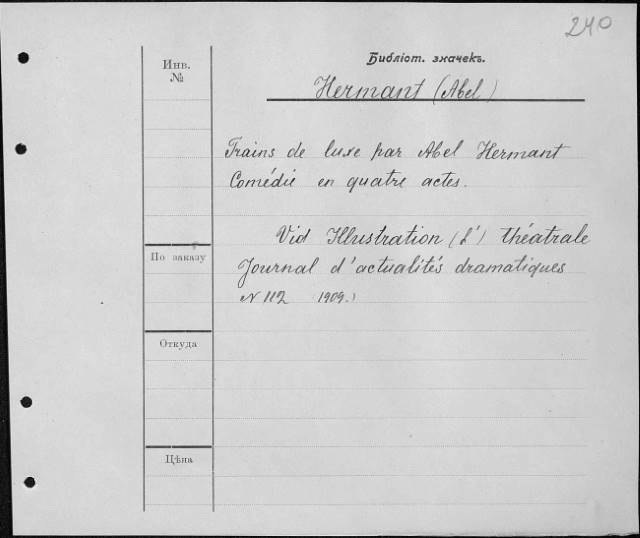 240
Библіот. значекъ.
Инв.
№
Hermant (Abel)
Trains de luxe par Abel Hermant
Comédie en quatre actes.
Vid Illustration (L') théatrale
По заказу
Journal d'actualités dramatiques
N 112 (1909.)
Откуда
Цѣна